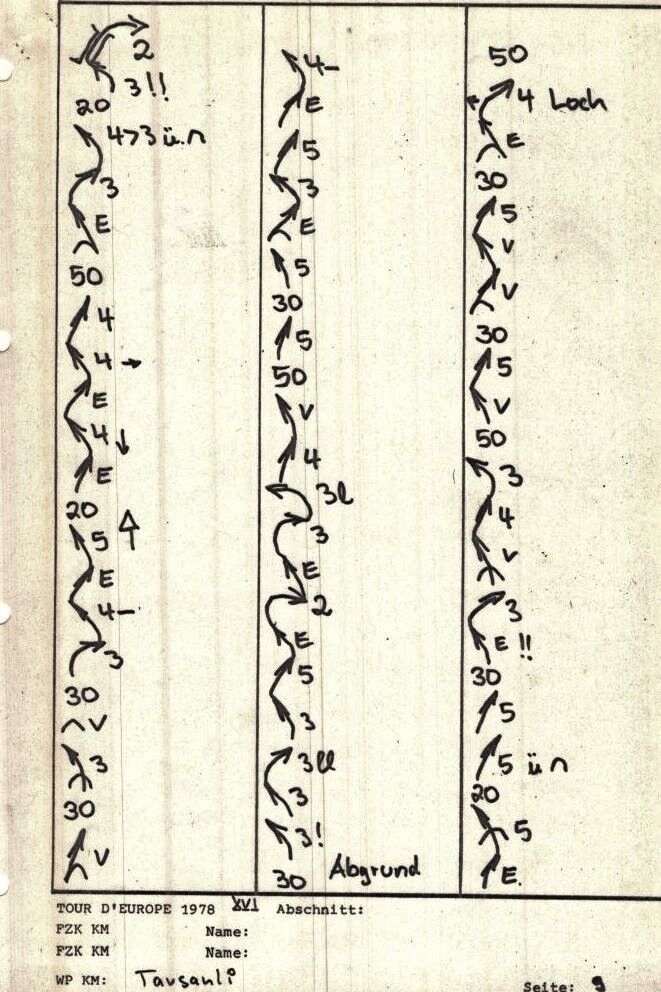 2
3!!
20
4>3 ü.n
3
E
50
4
4 →
E
4 ↓
E
20
5
E
4–
3
30
V
3
30
V
4–
E
5
3
E
5
30
5
50
V
4
3l
3
E
2
E
5
3
3ll
3
3!
30 Abgrund
50
4 Loch
E
30
5
V
V
30
5
V
50
3
4
V
3
E !!
30
5
5 ü n
20
5
E.
TOUR D'EUROPE 1978 XVI Abschnitt:
FZK KM Name:
FZK KM Name:
WP KM: Tavsanli
Seite: 9